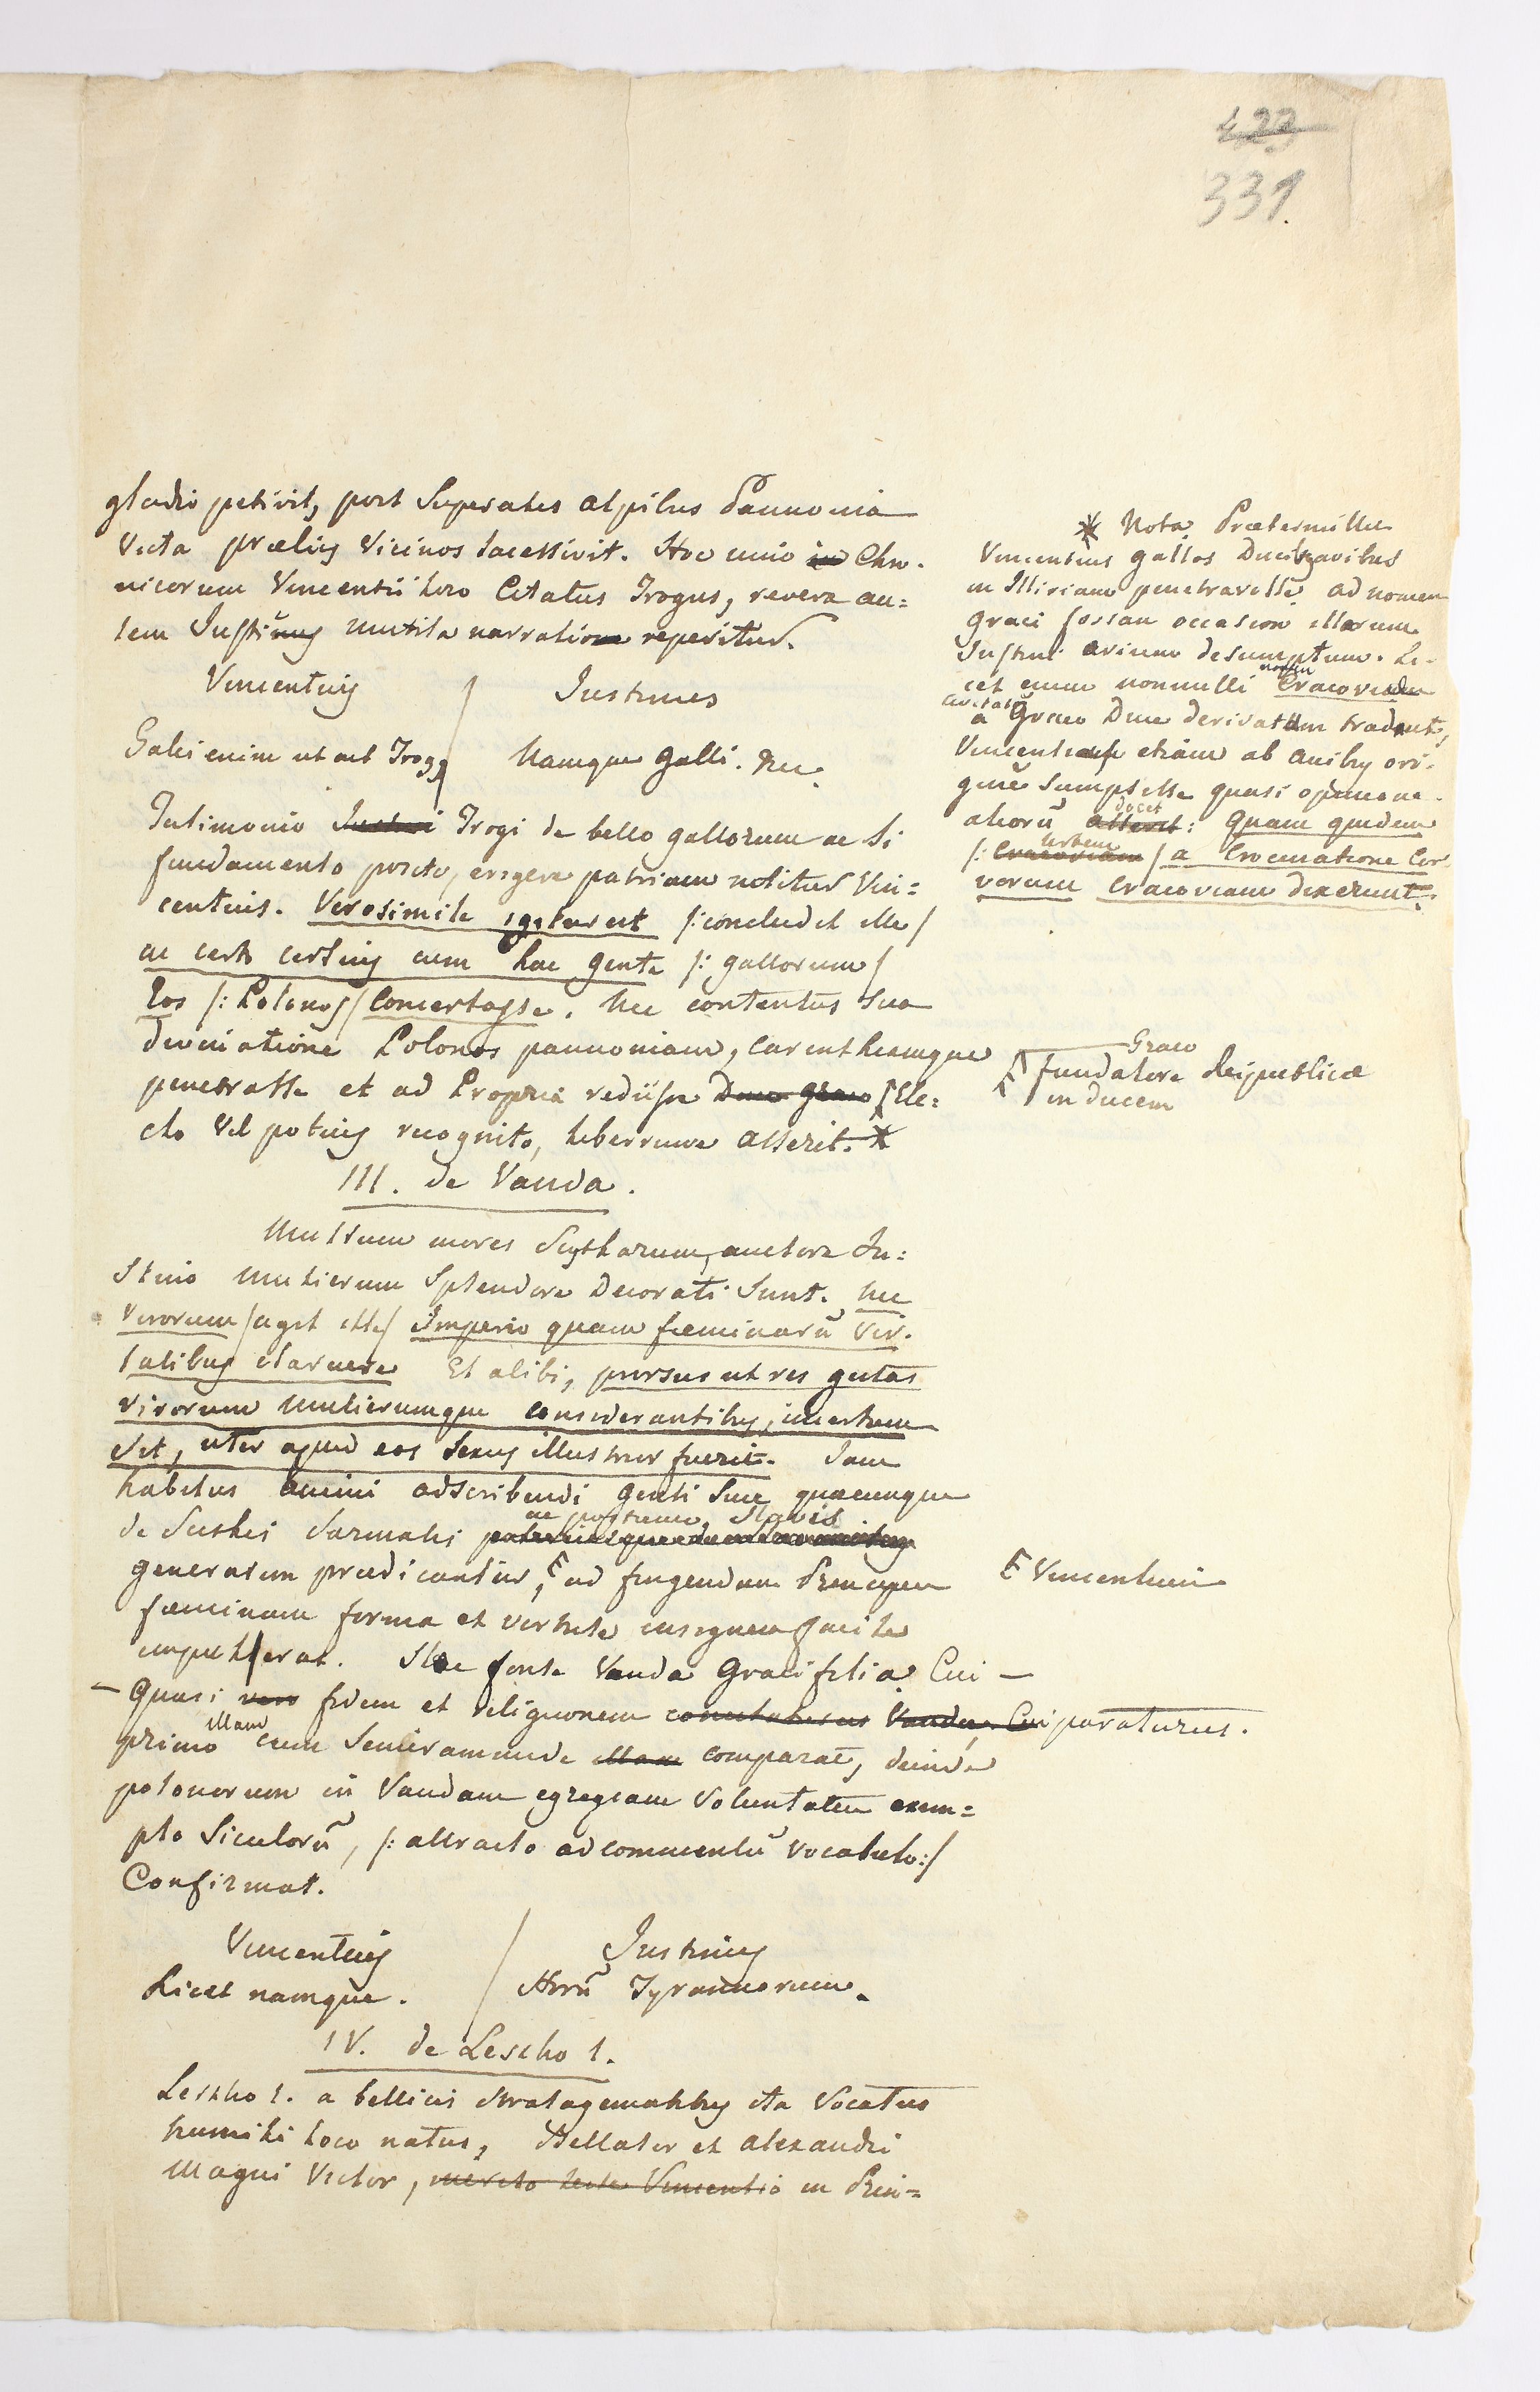 423
331.
gladio petivit, post Superatis alpibus Pannonia
victa præliis Vicinos lacessivit. Hoc unio in Chro-
nicorum Vincentii loco Citatus Trogus, revera au=
tem Justinus mutila narratione reperitur.
Vincentius / Justinus
Galli enim ut aut Trog9 / Namque Galli. Nec.
Testimonio Justini Trogi de bello gallorum ac Si
fundamento posito, erigere patriam nititur Vin=
centius. Verosimile igitur est /: concludit ille /
ac certo certius cum hac gente /: gallorum /
Eos /: Polonos / Concertasse. Nec contentus Sua
divinatione Polonos pannoniam, Carinthiamque
penetrasse et ad Propria rediisse Duce Graco Ele=
cto vel potius recognito, liberrime asserit. *
III. de Vanda.
Multum mores Scytharum, auctore Ju=
stino Mulierum Splendore Decorati Sunt. Nec
Virorum / agit ille / Imperio quam fæminarũ Vir-
tutibus claruere Et alibi, prorsus ut res gestas
virorum Mulierumque considerantibus, incertum
Sit, uter apud eos Sexus illustrior fuerit. Jam
habitus animi adscribendi genti Suæ quæcunque
ac postremo, Slavis
de Scithis Sarmatis
generatim prædicantur, ad fingendam Principem
fæminam forma et virtute insignem facile
impulerat. Hoc fonte Vanda Graci filia. Cui —
— Quasi vero fidem et religionem Vanda, Cui paraturus.
primo illam cum Semiramide illam comparat, deinde
polonorum in Vandam egregiam Voluntatem exem=
plo Siculorũ, /: attracto ad commentũ vocabulo :/
Confirmat.
Vincentius / Justinus
Licet namque. / Horũ Tyrannorum.
IV. de Lescho 1.
Leszko 1. a bellicis stratagematibus ita Vocatus
humili loco natus, Debellator et alexandri
Magni Victor, merito teste Vincentio in Prin=
* Nota Prætermittit
Vincentius gallos Ducibus avibus
in Illiriam penetrasse ad nomen
Graci forsan occasion illarum
Justini avium desumptum. Li-
cet enim nonnulli nomen Cracoviæ
civitatis a Graco Duce derivatum tradunt,
Vincentius etiam ab avibus ori-
ginẽ Sumpsisse quasi opinione
aliorũ asserit docet: Quam quidem
/: Cracoviam urbem / a Crocitatione Cor-
vorum Cracoviam dixerunt.
Graco
fundatore Reipublicæ
in ducem
Vincentium